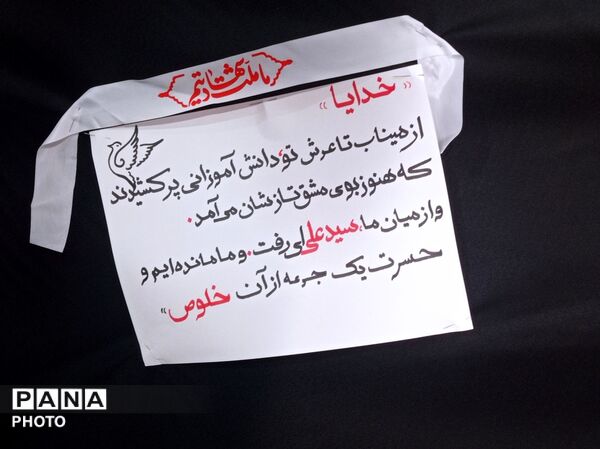 ما ملت شهادتیم
« خدایا »
از میناب تا عرش تو، دانش آموزانی پر کشیدند
که هنوز بوی مشق تازه‌شان می آمد.
و از میان ما، سید علی ای رفت. و ما مانده ایم و
حسرت یک جرعه از آن خلوص »
PANA
PHOTO